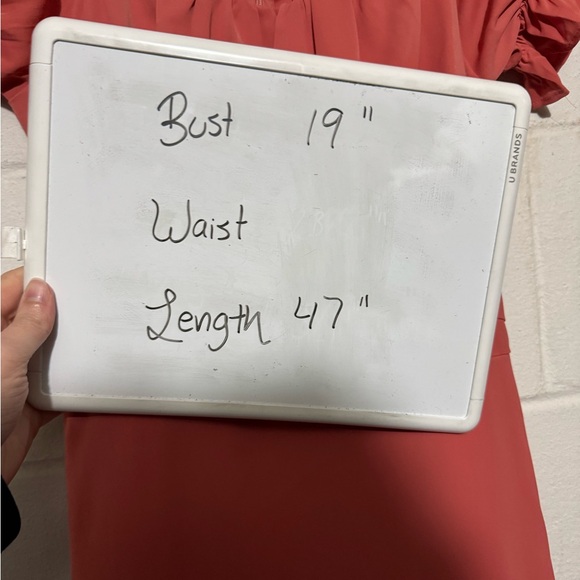 Bust 19"
U BRANDS
Waist
Length 47"